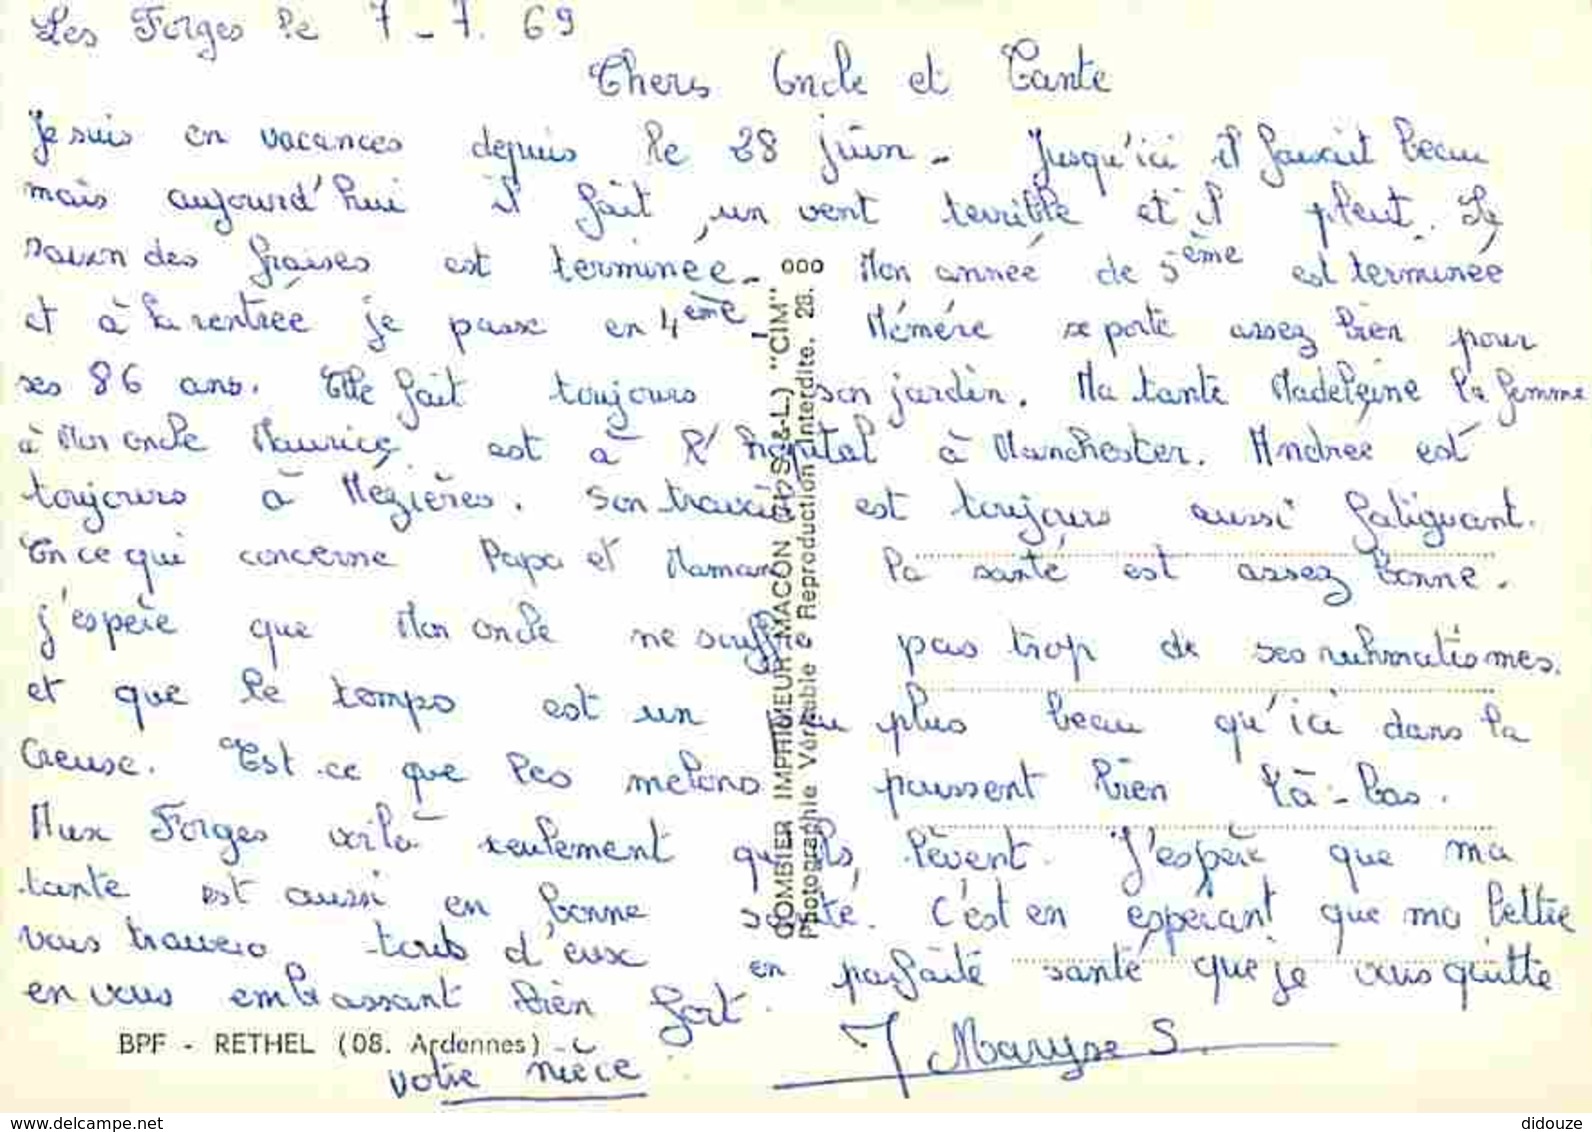 Les Forges le 7-7. 69
Chers Oncle et Tante
Je suis en vacances depuis le 28 juin - Jusqu'ici il faisait beau
mais aujourd'hui il fait un vent terrible et il pleut. La
saison des fraises est terminée - Mon année de 5ème est terminée
et à la rentrée je passe en 4ème. Mémère se porte assez bien pour
ses 86 ans. Elle fait toujours son jardin. Ma tante Madeleine la femme
à Mon oncle Maurice est à l'hôpital à Manchester. Andrée est
toujours à Mézières. Son travail est toujours aussi fatiguant.
En ce qui concerne Papa et Maman la santé est assez bonne.
j'espère que Mon oncle ne souffre pas trop de ses ruhmatismes.
et que le temps est un peu plus beau qu'ici dans la
Creuse. Est-ce que les melons poussent bien là-bas.
Aux Forges voilà seulement qu'ils lèvent. J'espère que ma
tante est aussi en bonne santé. C'est en espérant que ma lettre
vous trouvera tous d'eux en parfaite santé que je vous quitte
en vous embrassant bien fort.
votre nièce
Maryse S.
BPF - RETHEL (08. Ardennes)
COMBIER IMPRIMEUR MACON (S.-&-L.) "CIM"
Photographie Véritable Reproduction Interdite.
didouze